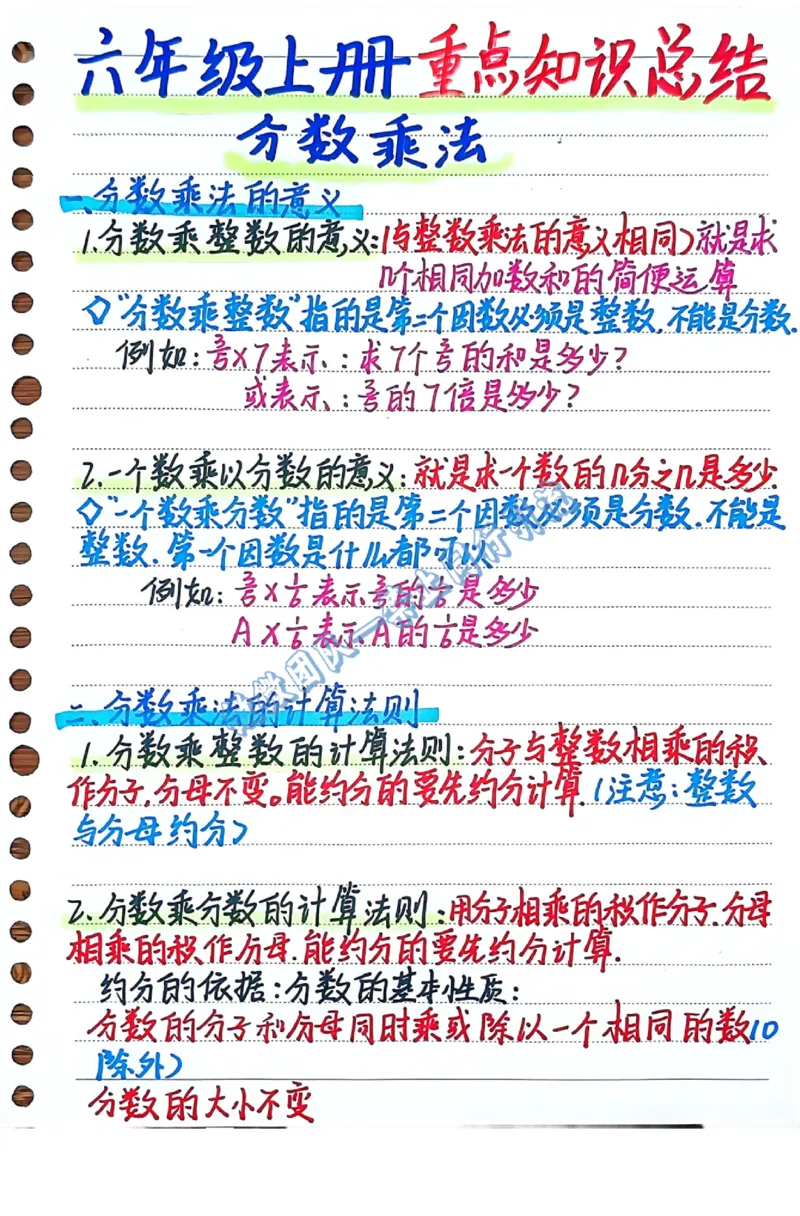 六年级上册重点知识总结
分数乘法
一、分数乘法的意义
1.分数乘整数的意义:(与整数乘法的意义相同)就是求
几个相同加数和的简便运算
◇"分数乘整数"指的是第二个因数必须是整数.不能是分数.
例如: ×7表示:求7个 的和是多少?
或表示: 的7倍是多少?
2.一个数乘以分数的意义:就是求一个数的几分之几是多少.
◇"一个数乘分数"指的是第二个因数必须是分数.不能是
整数.第一个因数是什么都可以
例如: × 表示 的 是多少
A× 表示A的 是多少
二、分数乘法的计算法则
1.分数乘整数的计算法则:分子与整数相乘的积
作分子.分母不变。能约分的要先约分计算.(注意:整数
与分母约分)
2.分数乘分数的计算法则:用分子相乘的积作分子.分母
相乘的积作分母.能约分的要先约分计算.
约分的依据:分数的基本性质:
分数的分子和分母同时乘或除以一个相同的数(0
除外)
分数的大小不变